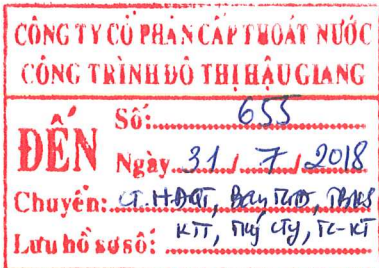 CÔNG TY CỔ PHẦN CẤP THOÁT NƯỚC
CÔNG TRÌNH ĐÔ THỊ HẬU GIANG
ĐẾN
Số: 655
Ngày 31 / 7 / 2018
Chuyển: CT. HĐQT, Ban TGĐ, TBKS
KTT, Thý Cty, TC-KT
Lưu hồ sơ số: